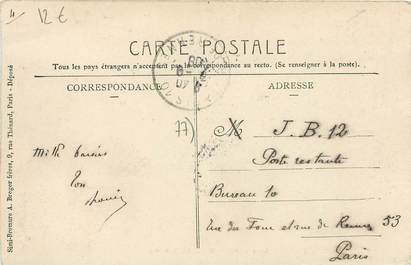 12 €
CARTE POSTALE
Tous les pays étrangers n'acceptent pas la correspondance au recto. (Se renseigner à la poste).
CORRESPONDANCE
ADRESSE
Simi-Bromure A. Breger frères, 9, rue Thénard, Paris - Déposé
77)
Mille baisers
Ton
Louis
J. B. 12
Poste restante
Bureau 10
rue du Four et rue de Rennes 53
Paris